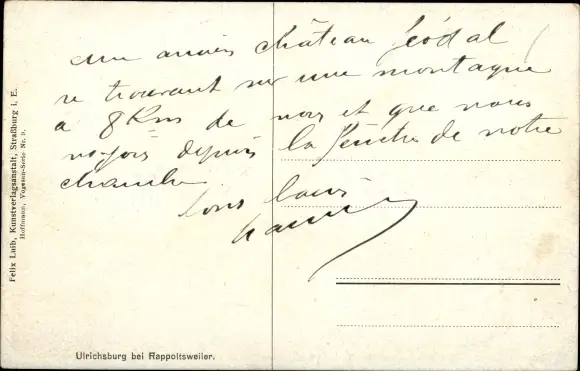 château féodal
se trouvant sur une montagne
a 8 Kms de nous et que nous
voyons depuis la fenêtre de notre
chambre
Felix Luib, Kunstverlagsanstalt, Straßburg i. E.
Hoffmann, Vogesen-Serie Nr. 9.
Ulrichsburg bei Rappoltsweiler.